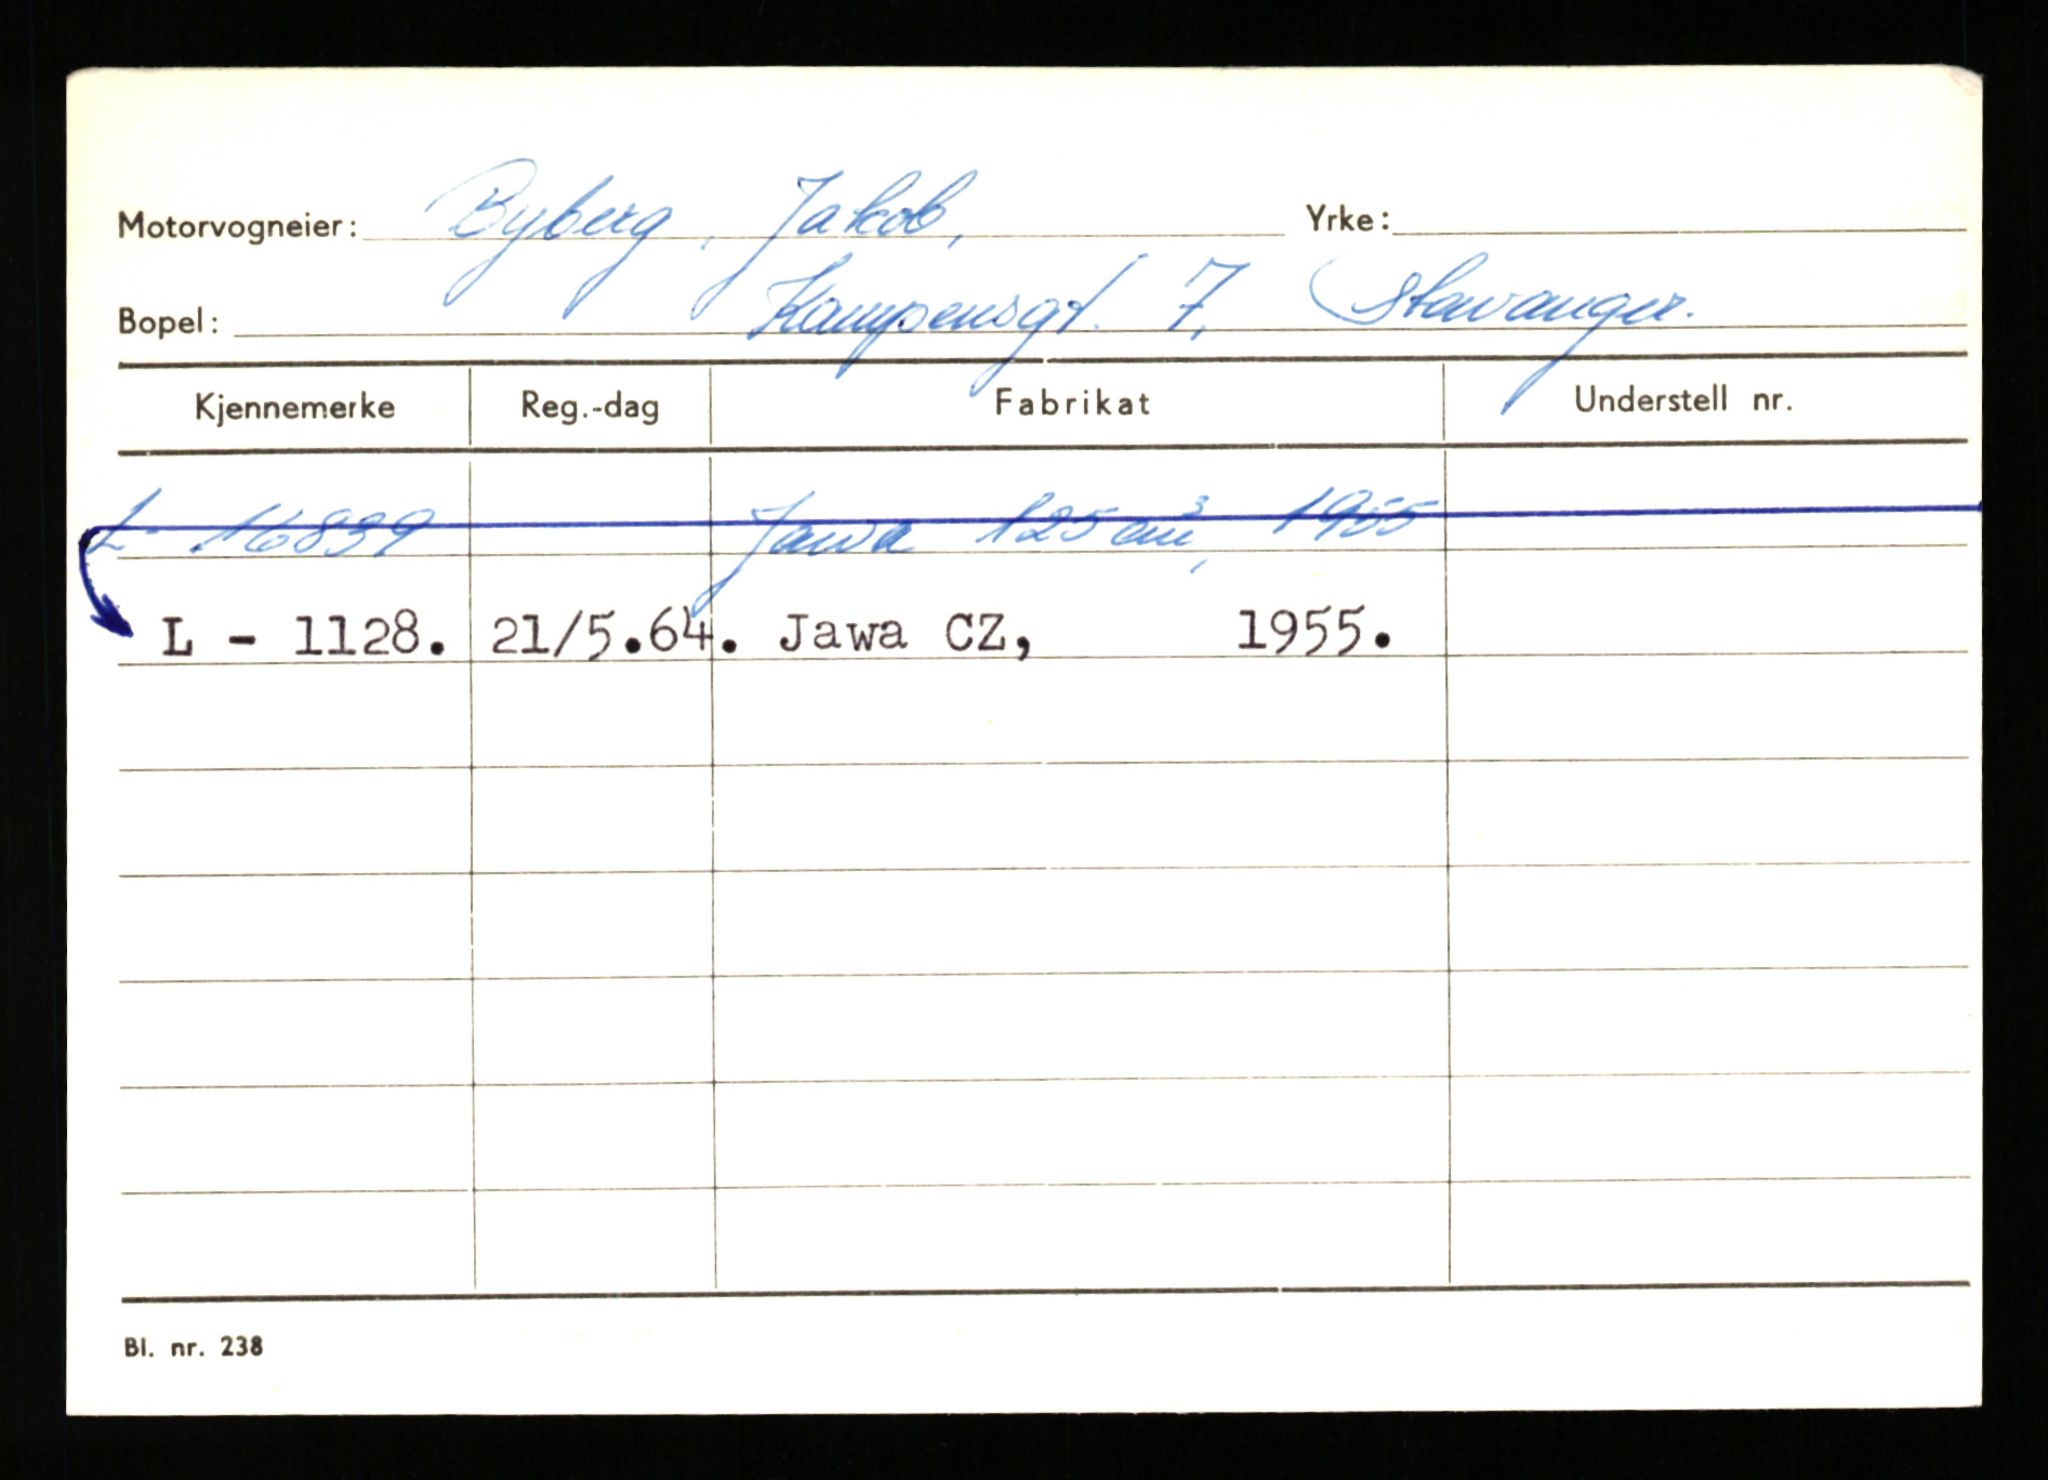 Motorvogneier: Byberg, Jakob, Yrke:
Bopel: Kampensgt. 7, Stavanger.
Kjennemerke Reg.-dag Fabrikat Understell nr.
L - 16839 Jawa 125 cm³, 1955
L - 1128. 21/5.64. Jawa CZ, 1955.
Bl. nr. 238